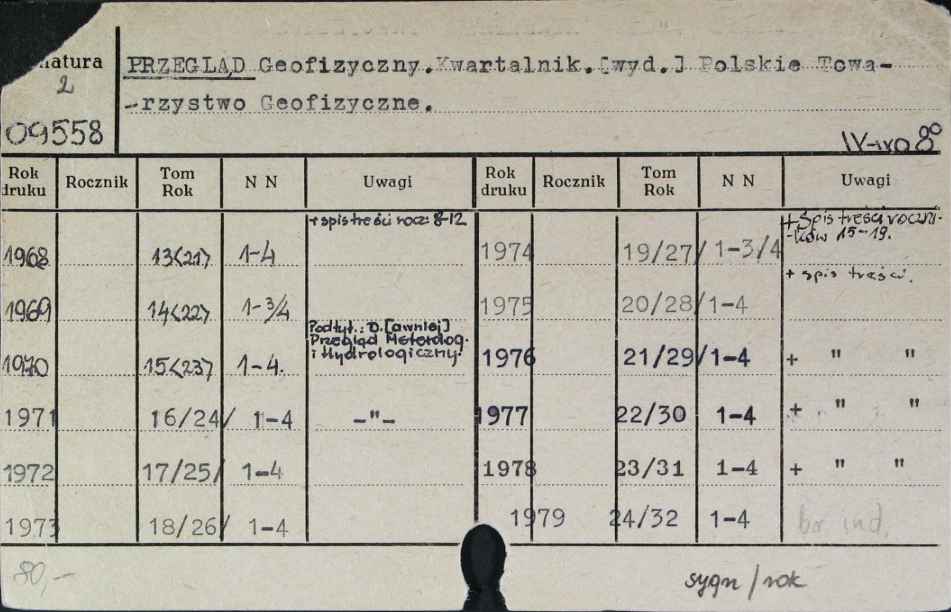 natura
2
09558
PRZEGLĄD Geofizyczny.Kwartalnik.[wyd.] Polskie Towa-
-rzystwo Geofizyczne.
8°
Rok druku Rocznik Tom Rok N N Uwagi Rok druku Rocznik Tom Rok N N Uwagi
1968 13<21> 1-4 + spis treści rocz. 8-12 1974 19/27/ 1-3/4 + Spis treści roczni-
-ków 15-19.
1969 14<22> 1-3/4 1975 20/28/ 1-4 + spis treści.
1970 15<23> 1-4. Podtyt.: D.[awniej]
Przegląd Meteorolog.
i Hydrologiczny. 1976 21/29/ 1-4 + " "
1971 16/24/ 1-4 -"- 1977 22/30 1-4 + " "
1972 17/25/ 1-4 1978 23/31 1-4 + " "
1973 18/26/ 1-4 1979 24/32 1-4 br. ind.
80,-
sygn/rok